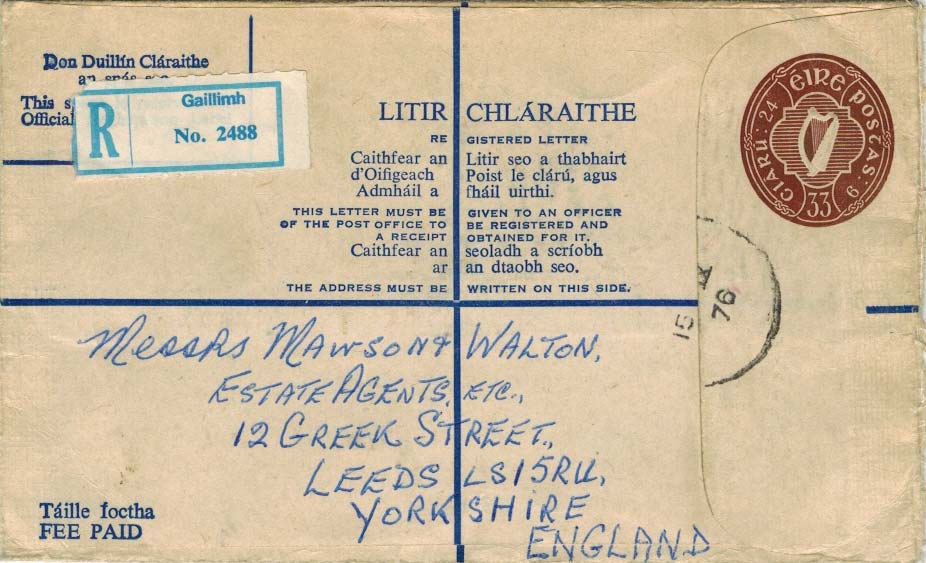 Don Duillín Cláraithe
an spás seo
This s
Official
R
Gaillimh
No. 2488
LITIR CHLÁRAITHE
REGISTERED LETTER
Caithfear an Litir seo a thabhairt
d'Oifigeach Poist le clárú, agus
Admháil a fháil uirthi.
THIS LETTER MUST BE GIVEN TO AN OFFICER
OF THE POST OFFICE TO BE REGISTERED AND
A RECEIPT OBTAINED FOR IT.
Caithfear an seoladh a scríobh
ar an dtaobh seo.
THE ADDRESS MUST BE WRITTEN ON THIS SIDE.
ÉIRE POSTAS: 9
CLÁRÚ: 24
33
15
76
Messrs Mawson & Walton,
Estate Agents, etc.,
12 Greek Street,
Leeds LS15RU,
Yorkshire
England
Táille foctha
FEE PAID